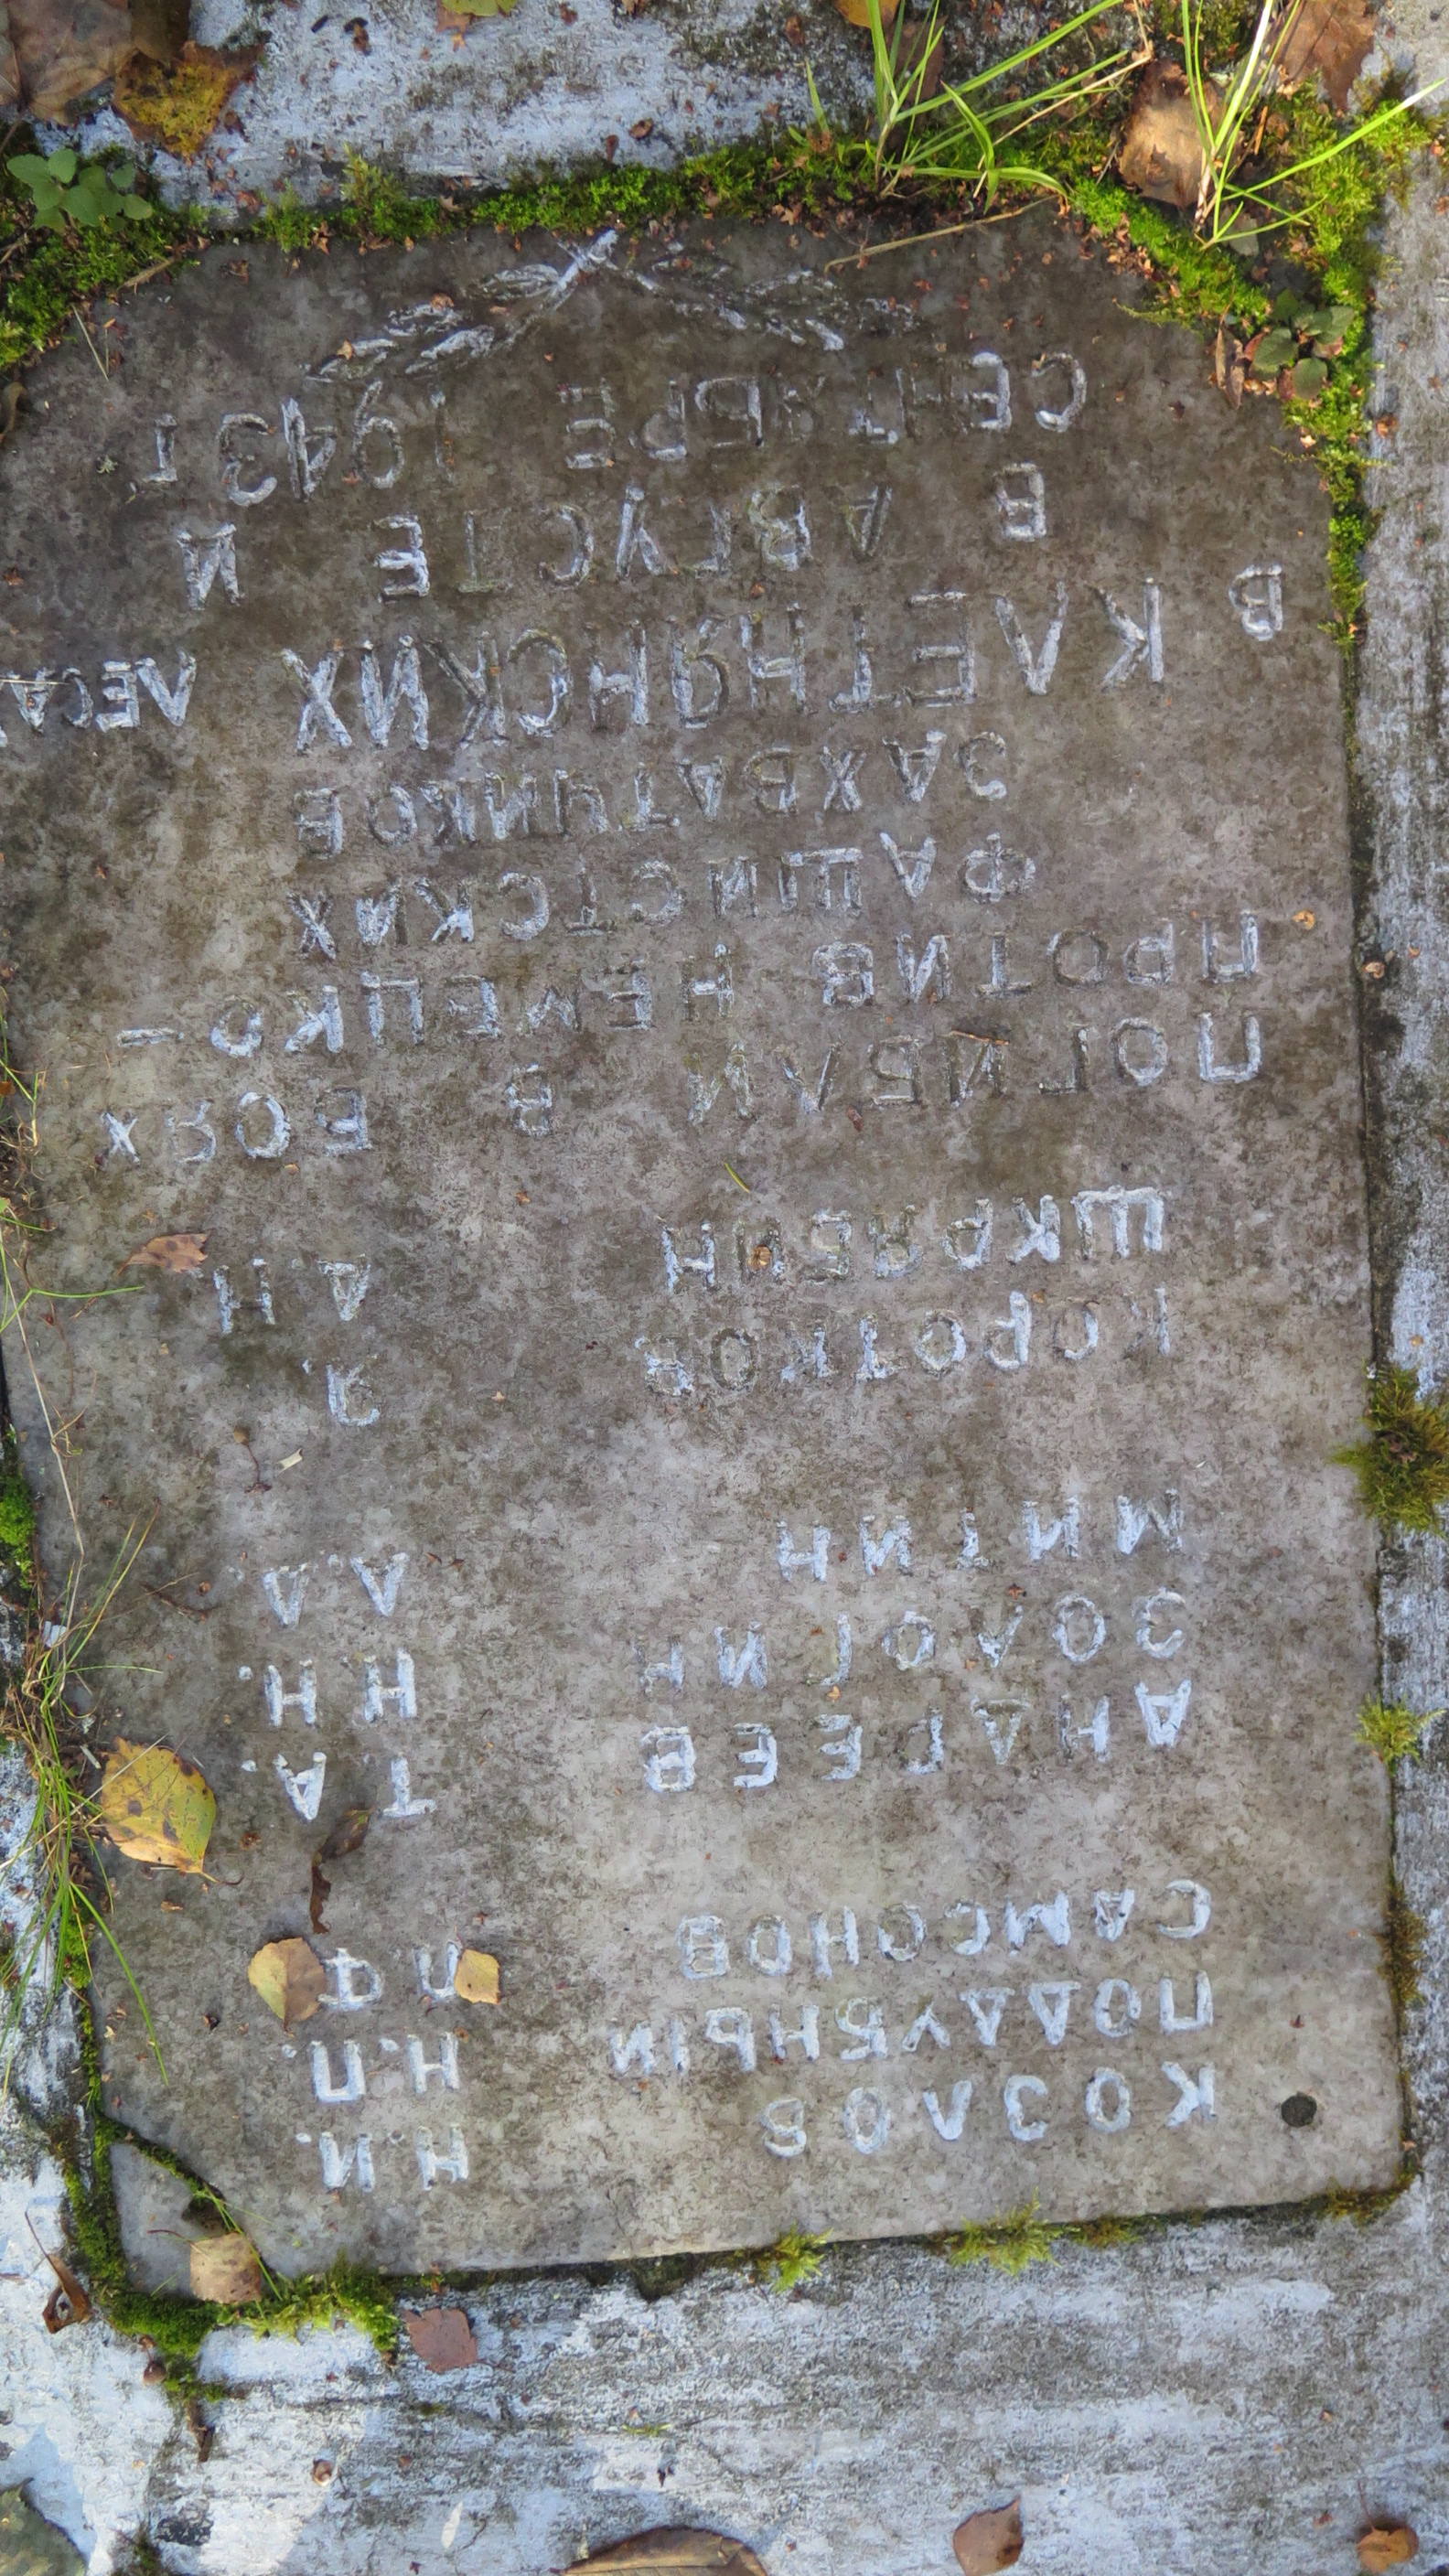 КОЗЛОВ Н.И.
ПОДУБНЫЙ Н.П.
САМСОНОВ П Ф
АНДРЕЕВ Т.А.
ЗОЛОГИН Н.Н.
МИТИН А.Д.
КОРОТКОВ Я.
ШКРЯБИН А Н
ПОГИБЛИ В БОЯХ
ПРОТИВ НЕМЕЦКО-
ФАШИСТСКИХ
ЗАХВАТЧИКОВ
В КЛЕТНЯНСКИХ ЛЕСАХ
В АВГУСТЕ И
СЕНТЯБРЕ 1943 Г